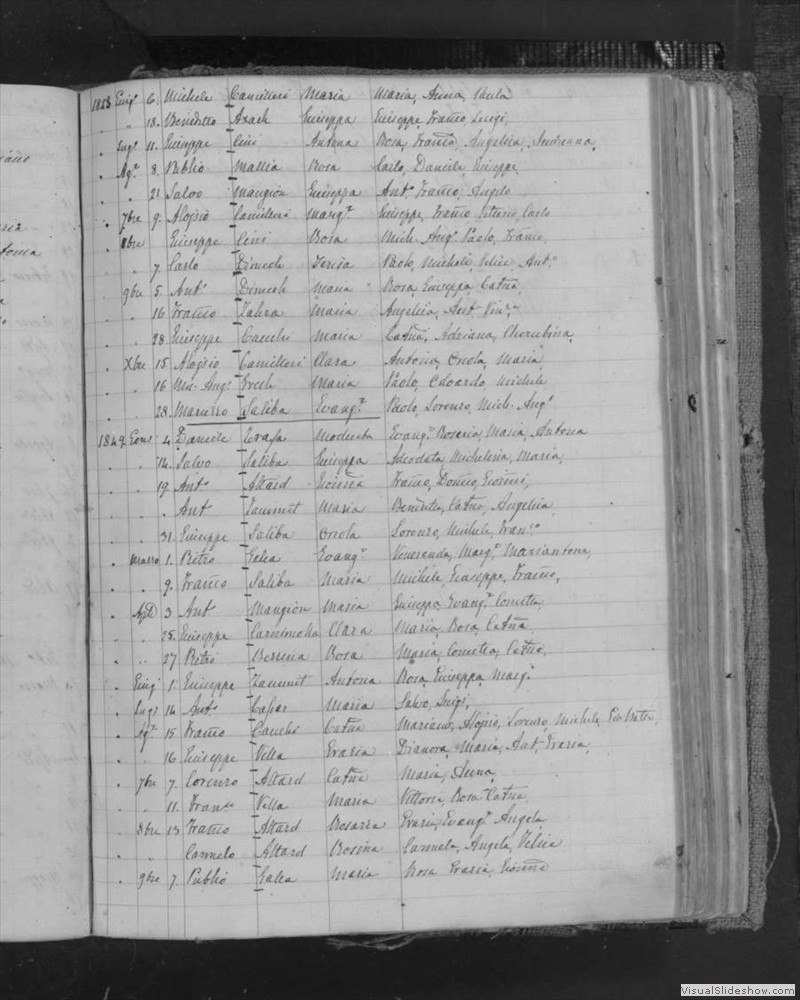 1848 Giug.o 6. Michele Camilleri Maria Maria, Anna, Paula
" 18. Benedetto Axach Giuseppa Giuseppe, Franco, Luigi,
Lug.o 11. Giuseppe Cini Antona Rosa, Franca, Angelica, Andreana,
Ag.o 8. Publio Mallia Rosa Carlo, Daniele, Giuseppe,
" 21 Salvo Mangion Giuseppa Ant.o Franco, Angelo
7bre 9. Aloisio Camilleri Marg.a Giuseppe, Franco, Vittorio, Carlo
8bre Giuseppe Cini Rosa Mich. Ang.o Paolo, Franco,
" 7. Carlo Dimech Teresa Paolo, Michele, Felice, Ant.o
9bre 5. Ant.o Dimech Maria Rosa, Giuseppa, Catna,
" 16 Franco Zahra Maria Angelica, Ant.
" 28 Giuseppe Cauchi Maria Catna, Adriana, Cherubina,
Xbre 15 Aloisio Camilleri Clara Antonio, Orsola, Maria
" 16 Mic. Ang.o Grech Maria Paolo, Edoardo, Michele
" 28. Saliba Evang.a Paolo, Lorenzo, Mich. Ang.o
1849 Genn. 4 Daniele Modesta Evang.a Rosaria, Maria, Antona
" 14. Salvo Saliba Giuseppa Adeodata, Michelina, Maria,
" 19. Ant.o Attard Gionna Franco, Domco, Gionni,
" Ant Zammit Maria Benedetta, Catna, Angelica
" 31. Giuseppe Saliba Orsola Lorenzo, Michele, Fran.co
" Marzo 1. Pietro Galea Evang.a Veneranda, Marg.a Mariantona,
" 9. Franco Saliba Maria Michele, Giuseppe, Franco,
" Aple 3 Ant Mangion Maria Giuseppa, Evang.a Cometa,
" 25. Giuseppe Clara Maria, Rosa, Catna
" 27 Pietro Rosa Maria, Cometa, Catna,
" Giug 1. Giuseppe Zammit Antona Rosa, Giuseppa, Marg.a
" Lug.o 14. Ant.o Capar Maria Salvo, Luigi,
" Ag.o 15 Franco Cauchi Catna Mariano, Aloisio, Lorenzo, Michele,
" 16 Giuseppe Vella Grazia Dianora, Maria, Ant. Grazia
" 7bre 7. Lorenzo Attard Catna Maria, Anna,
" 11. Fran.co Vella Maria Vittoria, Rosa, Catna,
" 8bre 13 Franco Attard Rosaria Grazia, Evang.a Angela
" Carmelo Attard Rosina Carmela, Angela, Felicia
" 9bre 7. Publio Galea Maria Rosa, Grazia, Gionna
VisualSlideshow.com